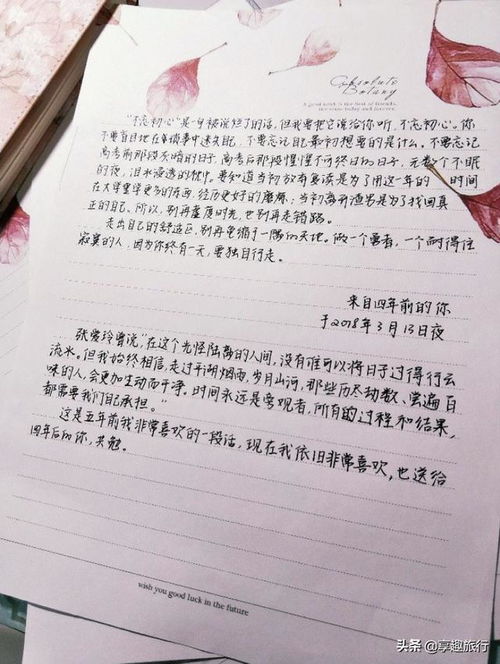 Absolute
Botany
A good book is the best of friends,
the same today and forever.
“不忘初心”是一句被说烂了的话，但我要把它说给你听，不忘初心。你
不要盲目地在琐事中迷失自己，不要忘记自己最初想要的是什么，不要忘记
高考前那段灰暗的日子，高考后那段惶惶不可终日的日子，无数个不眠
的夜，泪水浸透的枕巾。要知道当初放弃复读是为了用这一年的时间
在大学里学更多的东西，经历更好的磨炼；当初离开道是为了找回真
正的自己，所以，别再虚度时光，也别再走错路。
走出自己的舒适区，别再龟缩于一隅的天地。做一个勇者，一个耐得住
寂寞的人，因为你终有一天，要独自行走。
来自四年前的你
于2018年3月13日夜
张爱玲曾说，“在这个光怪陆离的人间，没有谁可以将日子过得行云
流水。但我始终相信，走过平湖烟雨，岁月山河，那些历尽劫数、尝遍百
味的人，会更加生动而干净。时间永远是旁观者，所有的过程和结果，
都需要我们自己承担。”
这是五年前我非常喜欢的一段话，现在我依旧非常喜欢，也送给
四年后的你，共勉。
wish you good luck in the future
头条 @享趣旅行